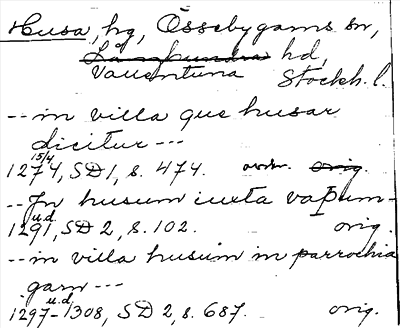 Husa, hg, Össebygarns sn,
Långhundra hd,
Vallentuna Stockh. l.
-- in villa que husar
dicitur ---
15/4
1274, SD 1, s. 474. avskr. orig.
-- In husum iuxta vapum -
u.d.
1291, SD 2, s. 102. orig.
-- in villa husum in parrochia
garn ---
u.d.
1297-1308, SD 2, s. 687. orig.